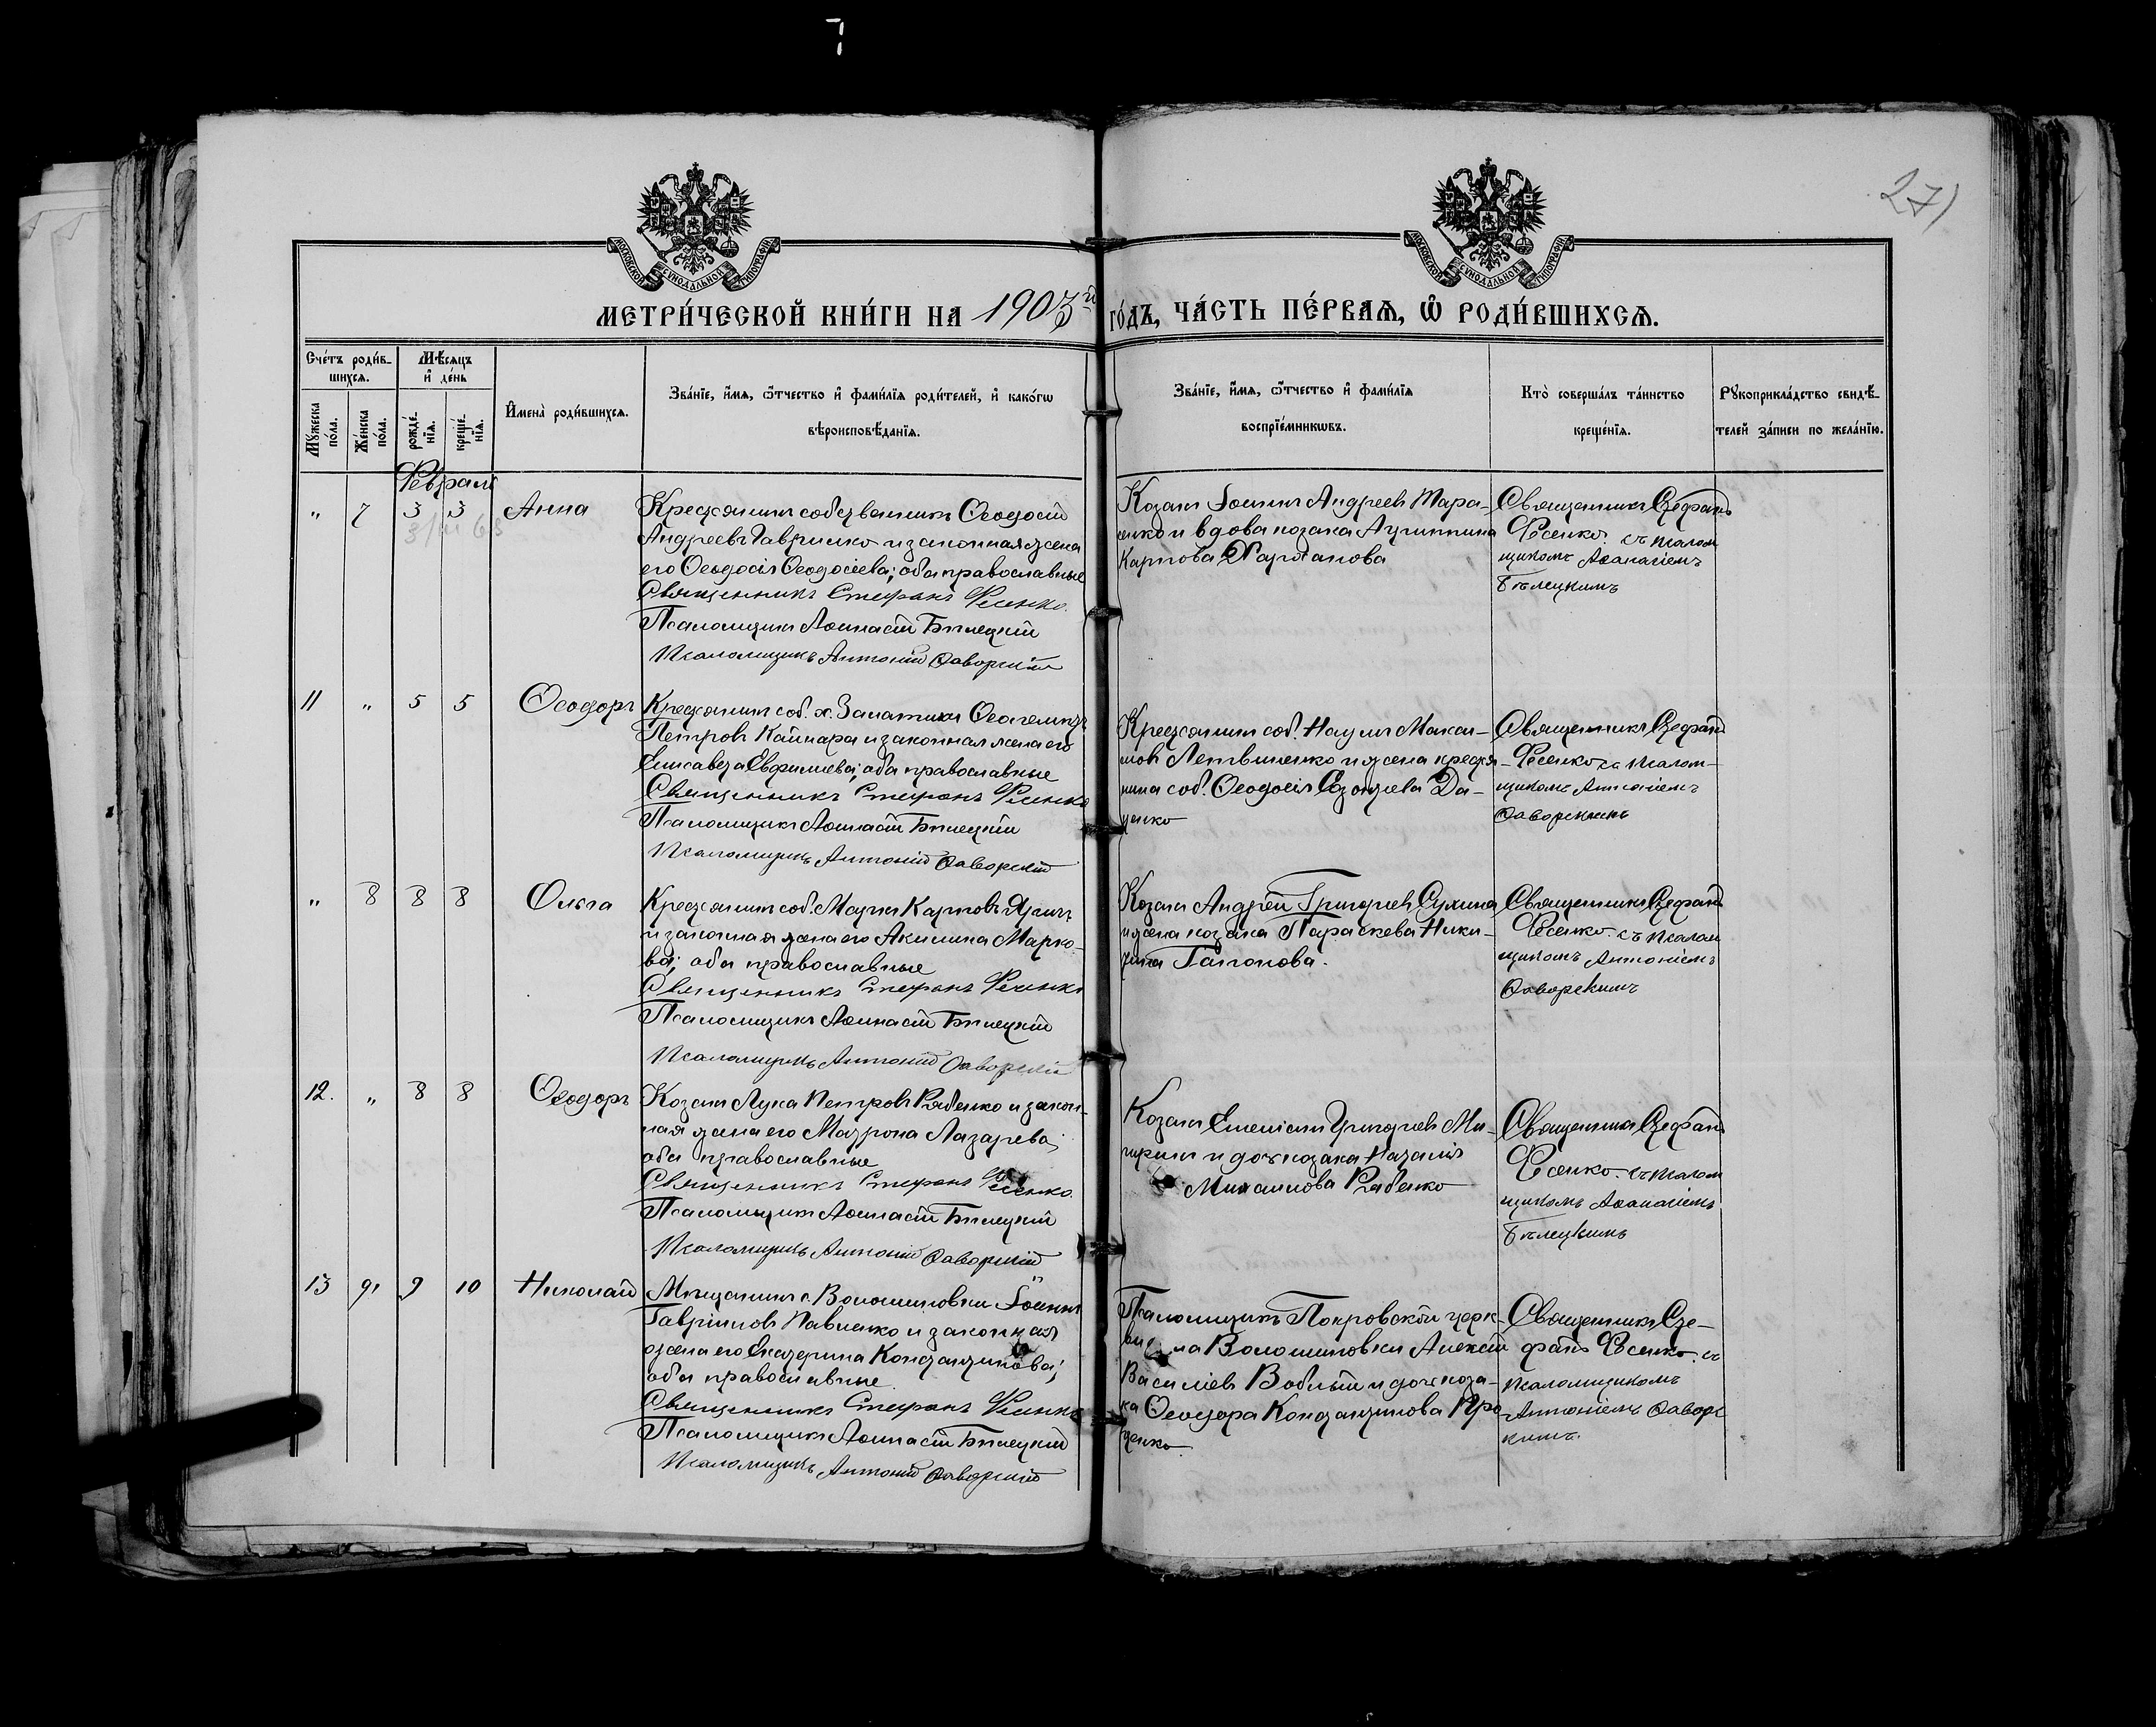 271
МОСКОВСКОЙ СѴНОДАЛЬНОЙ ТИПОГРАФІИ
МОСКОВСКОЙ СѴНОДАЛЬНОЙ ТИПОГРАФІИ
МЕТРИ́ЧЕСКОЙ КНИ́ГИ НА 1903й ГО́ДЪ, ЧА́СТЬ ПЕ́РВАѦ, Ѡ҆ РОДИ́ВШИХСѦ.
Сче́тъ роди́в-
шихсѧ.
Мѣ́сѧцъ
и҆ де́нь
Мꙋ́жеска
по́ла.
Же́нска
по́ла.
рожде́-
нїѧ.
креще́-
нїѧ.
И҆мена̀ роди́вшихсѧ.
Зва́нїе, и҆́мѧ, ѻ҆́тчество и҆ фами́лїѧ роди́телей, и҆ како́гѡ
вѣроисповѣ́данїѧ.
Зва́нїе, и҆́мѧ, ѻ҆́тчество и҆ фами́лїѧ
воспрїе́мникѡвъ.
Кто̀ соверша́лъ та́инство
креще́нїѧ.
Рꙋкоприкла́дство свидѣ́-
телей за́писи по жела́нїю.
Февраль
" 7 3 3 Анна
Крестьянинъ собственникъ Ѳеодосій
Андреевъ Гавриленко и законная жена
его Ѳеодосія Ѳеодосіева; оба православные
Священникъ Стефанъ Фесенко.
Псаломщикъ Аѳанасій Бѣлецкій
Псаломщикъ Антоній Яворскій
Козакъ Іоаннъ Андреевъ Тара-
енко и вдова козака Агриппина
Карпова
Священникъ Стефанъ
Фесенко. съ псалом
щикомъ Аѳанасіемъ
Бѣлецкимъ
11 " 5 5 Ѳеодоръ
Крестьянинъ соб. х.
Петровъ Кайнара и законная жена его
Елисавета Евфиміева; оба православные
Священникъ Стефанъ Фесенко
Псаломщикъ Аѳанасій Бѣлецкій
Псаломщикъ Антоній Яворскій
Крестьянинъ соб. Наумъ Макси-
мовъ Летвиненко и жена крестья-
нина соб. Ѳеодосія Да-
ценко
Священникъ Стефанъ
Фесенко съ псалом-
щикомъ Антоніемъ
Яворскимъ
" 8 8 8 Ольга
Крестьянинъ соб. Карповъ
и законная жена его Акилина Марко-
ва; оба православные
Священникъ Стефанъ Фесенко
Псаломщикъ Аѳанасій Бѣлецкій
Псаломщикъ Антоній Яворскій
Козакъ Андрей Григорьевъ Сухина
и жена козака Параскева Ники-
тина Гапонова.
Священникъ Стефанъ
Фесенко. съ псалом
щикомъ Антоніемъ
Яворскимъ
12. " 8 8 Ѳеодоръ
Козакъ Лука Петровъ Рябенко и закон-
ная жена его Матрона Лазарева;
оба православные
Священникъ Стефанъ Фесенко.
Псаломщикъ Аѳанасій Бѣлецкій
Псаломщикъ Антоній Яворскій
Козакъ Григорьевъ
и дочь козака Наталія
Михаилова Рябенко
Священникъ Стефанъ
Фесенко. съ псалом
щикомъ Аѳанасіемъ
Бѣлецкимъ
13 " 9 10 Николай
Мѣщанинъ с. Волошиновки Іоаннъ
Гавріиловъ Павленко и законная
жена его Екатерина Константинова;
оба православные
Священникъ Стефанъ Фесенко
Псаломщикъ Аѳанасій Бѣлецкій
Псаломщикъ Антоній Яворскій
Псаломщикъ Покровской церк-
ви села Волошиновки Алексій
Василіевъ Воблый и дочь коза-
ка Ѳеодора Константинова Про-
ценко
Священникъ Сте-
фанъ Фесенко. съ
псаломщикомъ
Антоніемъ Яворс
кимъ.